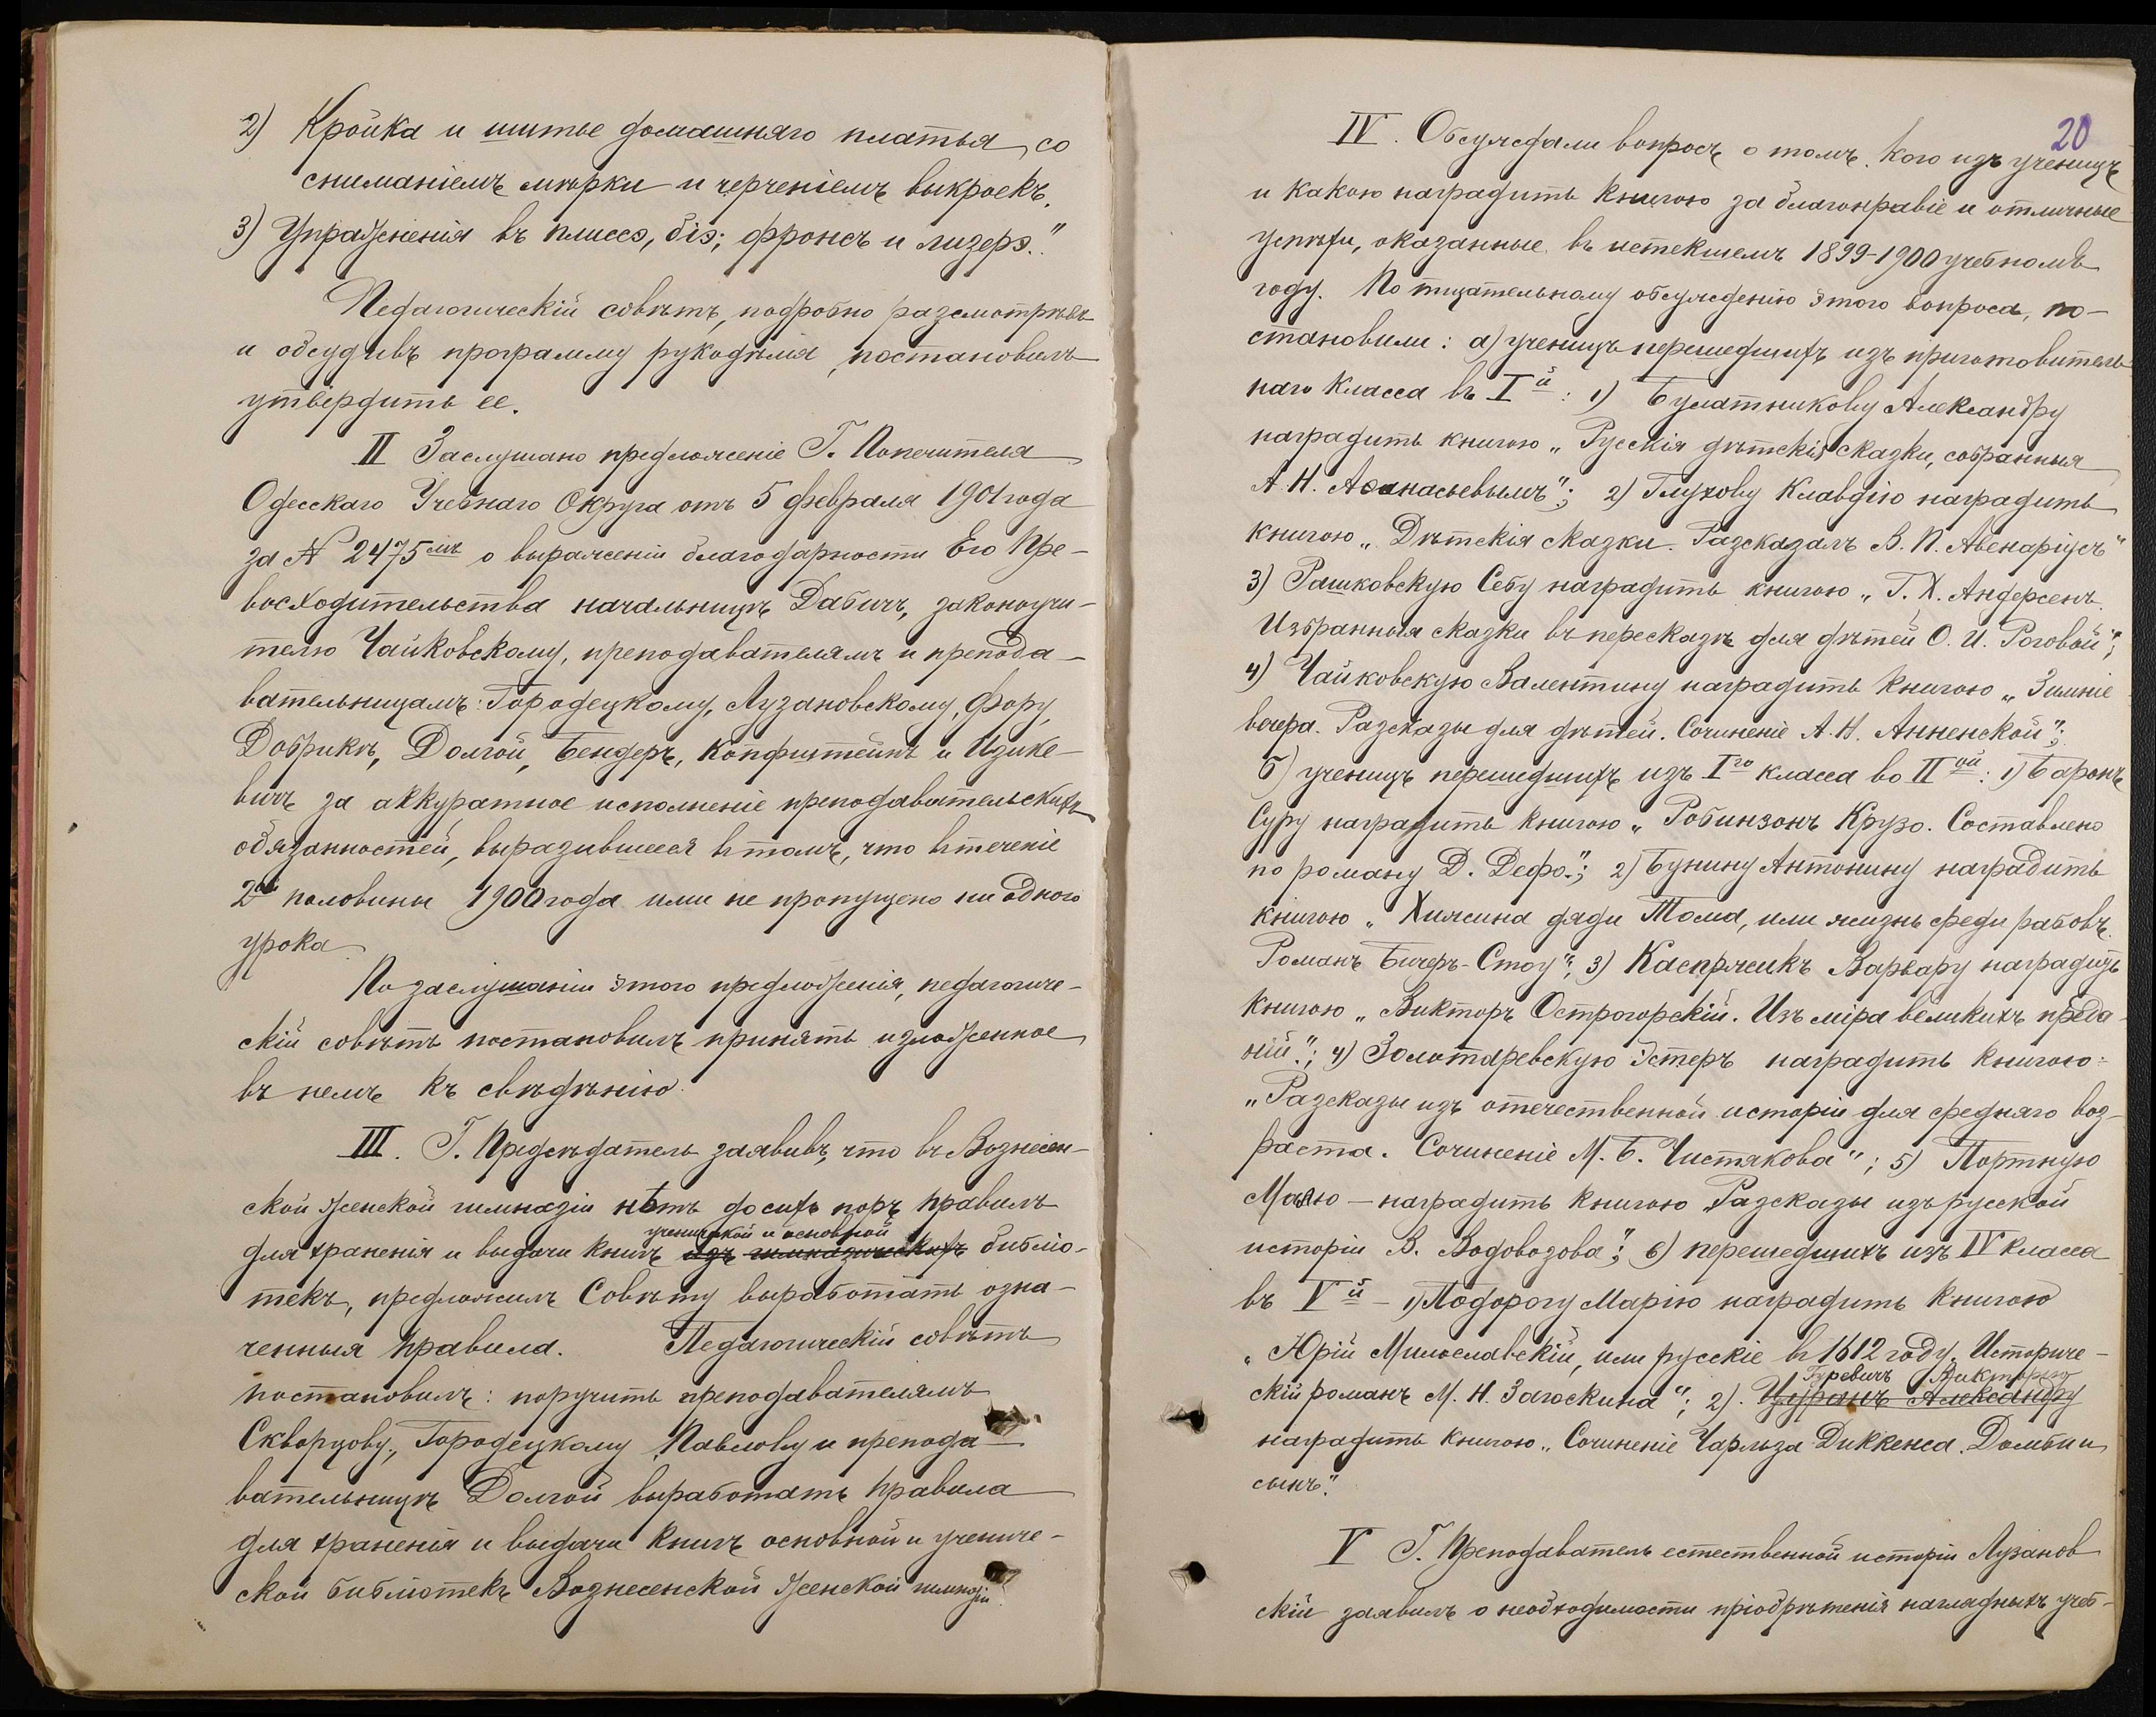 2) Кройка и шитье домашняго платья, со
сниманіемъ мѣрки и черченіемъ выкроекъ.
3) Упражненія въ плиссэ, біэ, фронсъ и лизерэ."
Педагогическій совѣтъ, подробно разсмотрѣвъ
и обсудивъ программу рукодѣлія, постановилъ
утвердить ее.
II Заслушано предложеніе Г. Попечителя
Одесскаго Учебнаго Округа отъ 5 февраля 1901 года
за № 2475мъ о выраженіи благодарности Его Пре-
восходительства начальницѣ Дабичъ, законоучи-
телю Чайковскому, преподавателямъ и препода-
вательницамъ: Городецкому, Лузановскому, Фору,
Добрикъ, Долгой, Бендеръ, Копфштейнъ и Идике-
вичъ за аккуратное исполненіе преподавательскихъ
обязанностей, выразившееся въ томъ, что втеченіе
2ой половины 1900 года ими не пропущено ни одного
урока.
По заслушаніи этого предложенія, педагогиче-
скій совѣтъ постановилъ принять изложенное
въ немъ къ свѣдѣнію.
III. Г. Предсѣдатель заявивъ, что въ Вознесен-
ской женской гимназіи нѣтъ до сихъ поръ правилъ
ученической и основной
для храненія и выдачи книгъ изъ гимназическихъ библіо-
текъ, предложилъ Совѣту выработать озна-
ченныя правила. Педагогическій совѣтъ
постановилъ: поручить преподавателямъ
Скворцову, Городецкому, Павлову и препода-
вательницѣ Долгой выработать правила
для храненія и выдачи книгъ основной и учениче-
ской библіотекъ Вознесенской женской гимназіи.
20
IV. Обсуждали вопросъ о томъ, кого изъ ученицъ
и какою наградить книгою за благонравіе и отличные
успѣхи, оказанные въ истекшемъ 1899-1900 учебномъ
году. По тщательному обсужденію этого вопроса, по-
становили: а) ученицъ перешедшихъ изъ приготовитель-
наго класса въ Iй: 1) Булатникову Александру
наградить книгою „Русскія дѣтскія сказки, собранныя
А. Н. Аѳанасьевымъ"; 2) Глухову Клавдію наградить
книгою „Дѣтскія сказки. Разсказалъ В. П. Авенаріусъ"
3) Рашковскую Себу наградить книгою „Г. Х. Андерсенъ.
Избранныя сказки въ пересказѣ для дѣтей О. И. Роговой";
4) Чайковскую Валентину наградить книгою „Зимніе
вечера. Разсказы для дѣтей. Сочиненіе А. Н. Анненской";
б) ученицъ перешедшихъ изъ Iго класса во IIой: 1) Баронъ
Суру наградить книгою „Робинзонъ Крузо. Составлено
по роману Д. Дефо."; 2) Бунину Антонину наградить
книгою „Хижина дяди Тома, или жизнь среди рабовъ.
Романъ Бичеръ-Стоу"; 3) Каспржикъ Варвару наградить
книгою „Викторъ Острогорскій. Изъ міра великихъ преда-
ній."; 4) Золотаревскую Эстеръ наградить книгою:
„Разсказы изъ отечественной исторіи для средняго воз-
раста. Сочиненіе М. Б. Чистякова"; 5) Портную
Малю — наградить книгою „Разсказы изъ русской
исторіи В. Водовозова"; в) перешедшихъ изъ IV класса
въ Vй — 1) Подорогу Марію наградить книгою
„Юрій Милославскій, или русскіе въ 1612 году. Историче-
скій романъ М. Н. Загоскина"; 2).
Гуревичъ Викторію
Цуранъ Александру
наградить книгою „Сочиненіе Чарльза Диккенса. Домби и
сынъ."
V Г. Преподаватель естественной исторіи Лузанов
скій заявилъ о необходимости пріобрѣтенія наглядныхъ учеб-